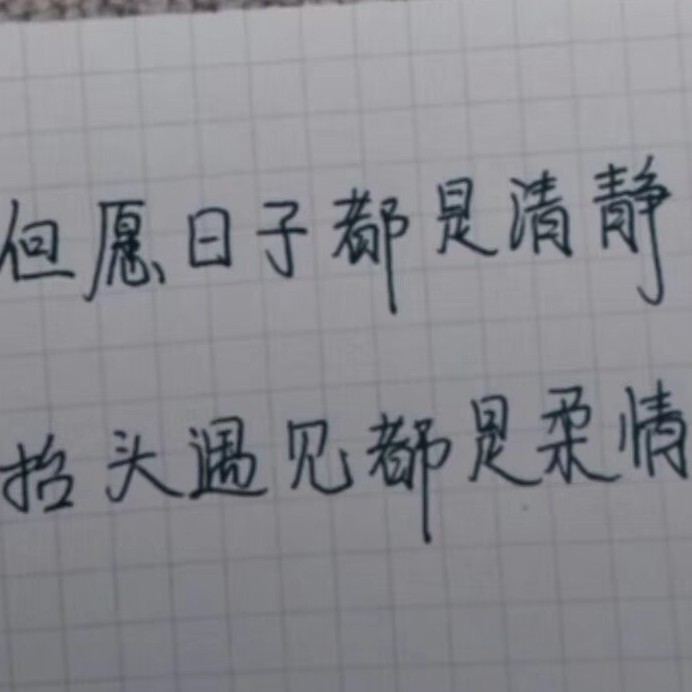 但愿日子都是清静
抬头遇见都是柔情